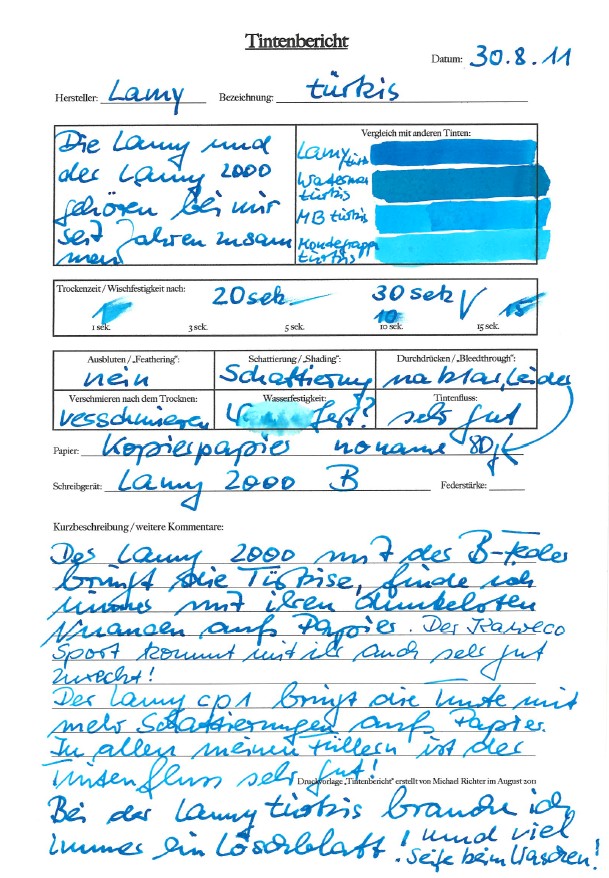 Tintenbericht
Datum: 30.8.11
Hersteller: Lamy Bezeichnung: türkis
Die Lamy und
der Lamy 2000
gehören bei mir
seit Jahren zusam
men
Vergleich mit anderen Tinten:
Lamy türk
Waterman
türkis
MB türkis
türkis
Trockenzeit / Wischfestigkeit nach:
20 sek. 30 sek
10 15
1 sek. 3 sek. 5 sek. 10 sek. 15 sek.
Ausbluten / „Feathering“: Schattierung / „Shading“: Durchdrücken / „Bleedthrough“:
nein Schattierung na klar, leider
Verschmieren nach dem Trocknen: Wasserfestigkeit: Tintenfluss:
verschmieren fest? sehr gut
Papier: Kopierpapier noname 80g
Schreibgerät: Lamy 2000 B Federstärke:
Kurzbeschreibung / weitere Kommentare:
Der Lamy 2000 mit der B-Feder
bringt die Türkise, finde ich
immer mit ihren dunkelsten
Nuancen aufs Papier. Der Kaweco
Sport kommt mit ihr auch sehr gut
zurecht!
Der Lamy cp1 bringt die Tinte mit
mehr Schattierungen aufs Papier.
In allen meinen Füllern ist der
Tintenfluss sehr gut!
Druckvorlage „Tintenbericht“ erstellt von Michael Richter im August 2011
Bei der Lamy türkis brauche ich
immer ein Löschblatt! und viel
Seife beim Waschen!